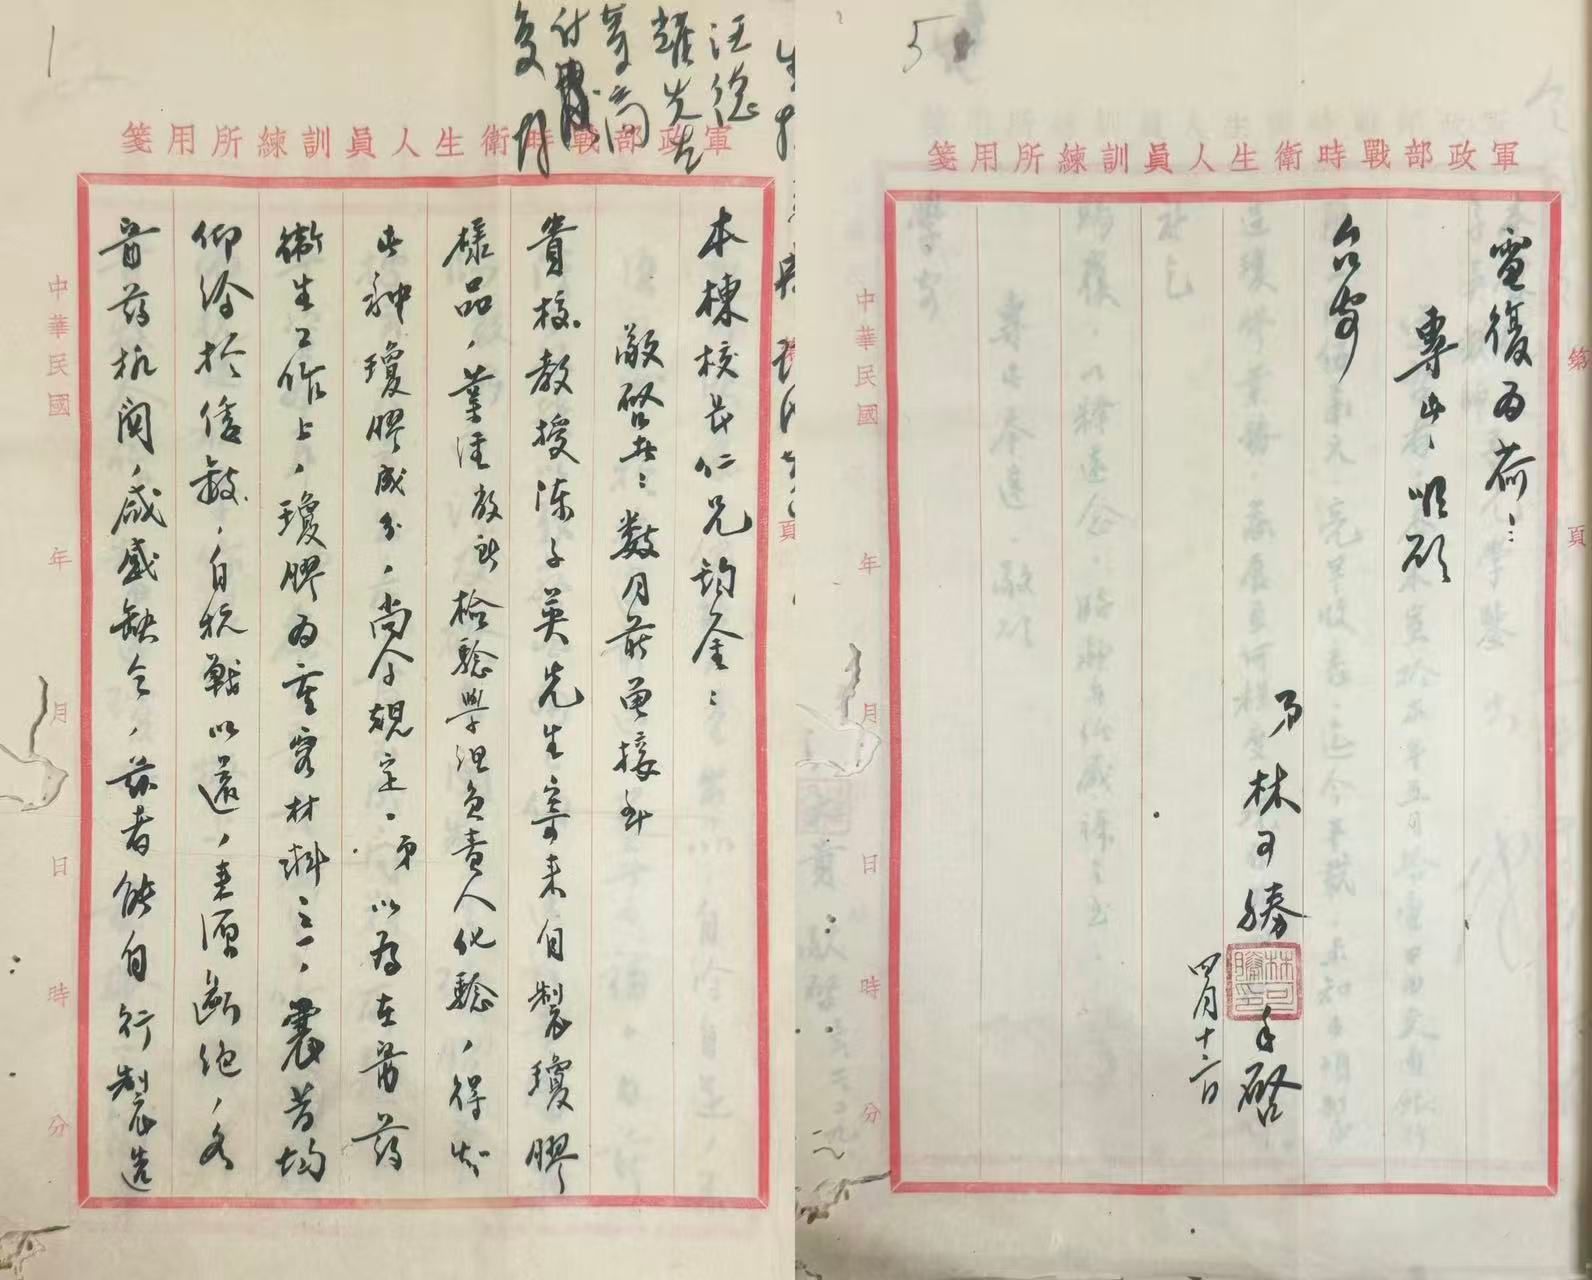 1
汪德
耀先生
拿商
付
复 月
軍政部戰時衛生人員訓練所用箋
本棟校長仁兄鈞鑒：
敬啓者：數月前曾接到
貴校教授陳子英先生寄來自製瓊膠
樣品，業經敝所檢驗學組負責人化驗，得知
此种瓊膠成分，尚合規定。弟以為在醫药
衛生工作上，瓊膠为重要材料之一，曩昔均
仰給於倭敵，自抗戰以還，來源斷絕，各
醫药机関，咸感缺乏，茲者能自行製造
中華民國 年 月 日 時 分
頁
5
軍政部戰時衛生人員訓練所用箋
第 頁
電復为荷：
專此，順頌
台安
弟 林可勝 手啓
林可勝印
四月十三日
中華民國 年 月 日 時 分